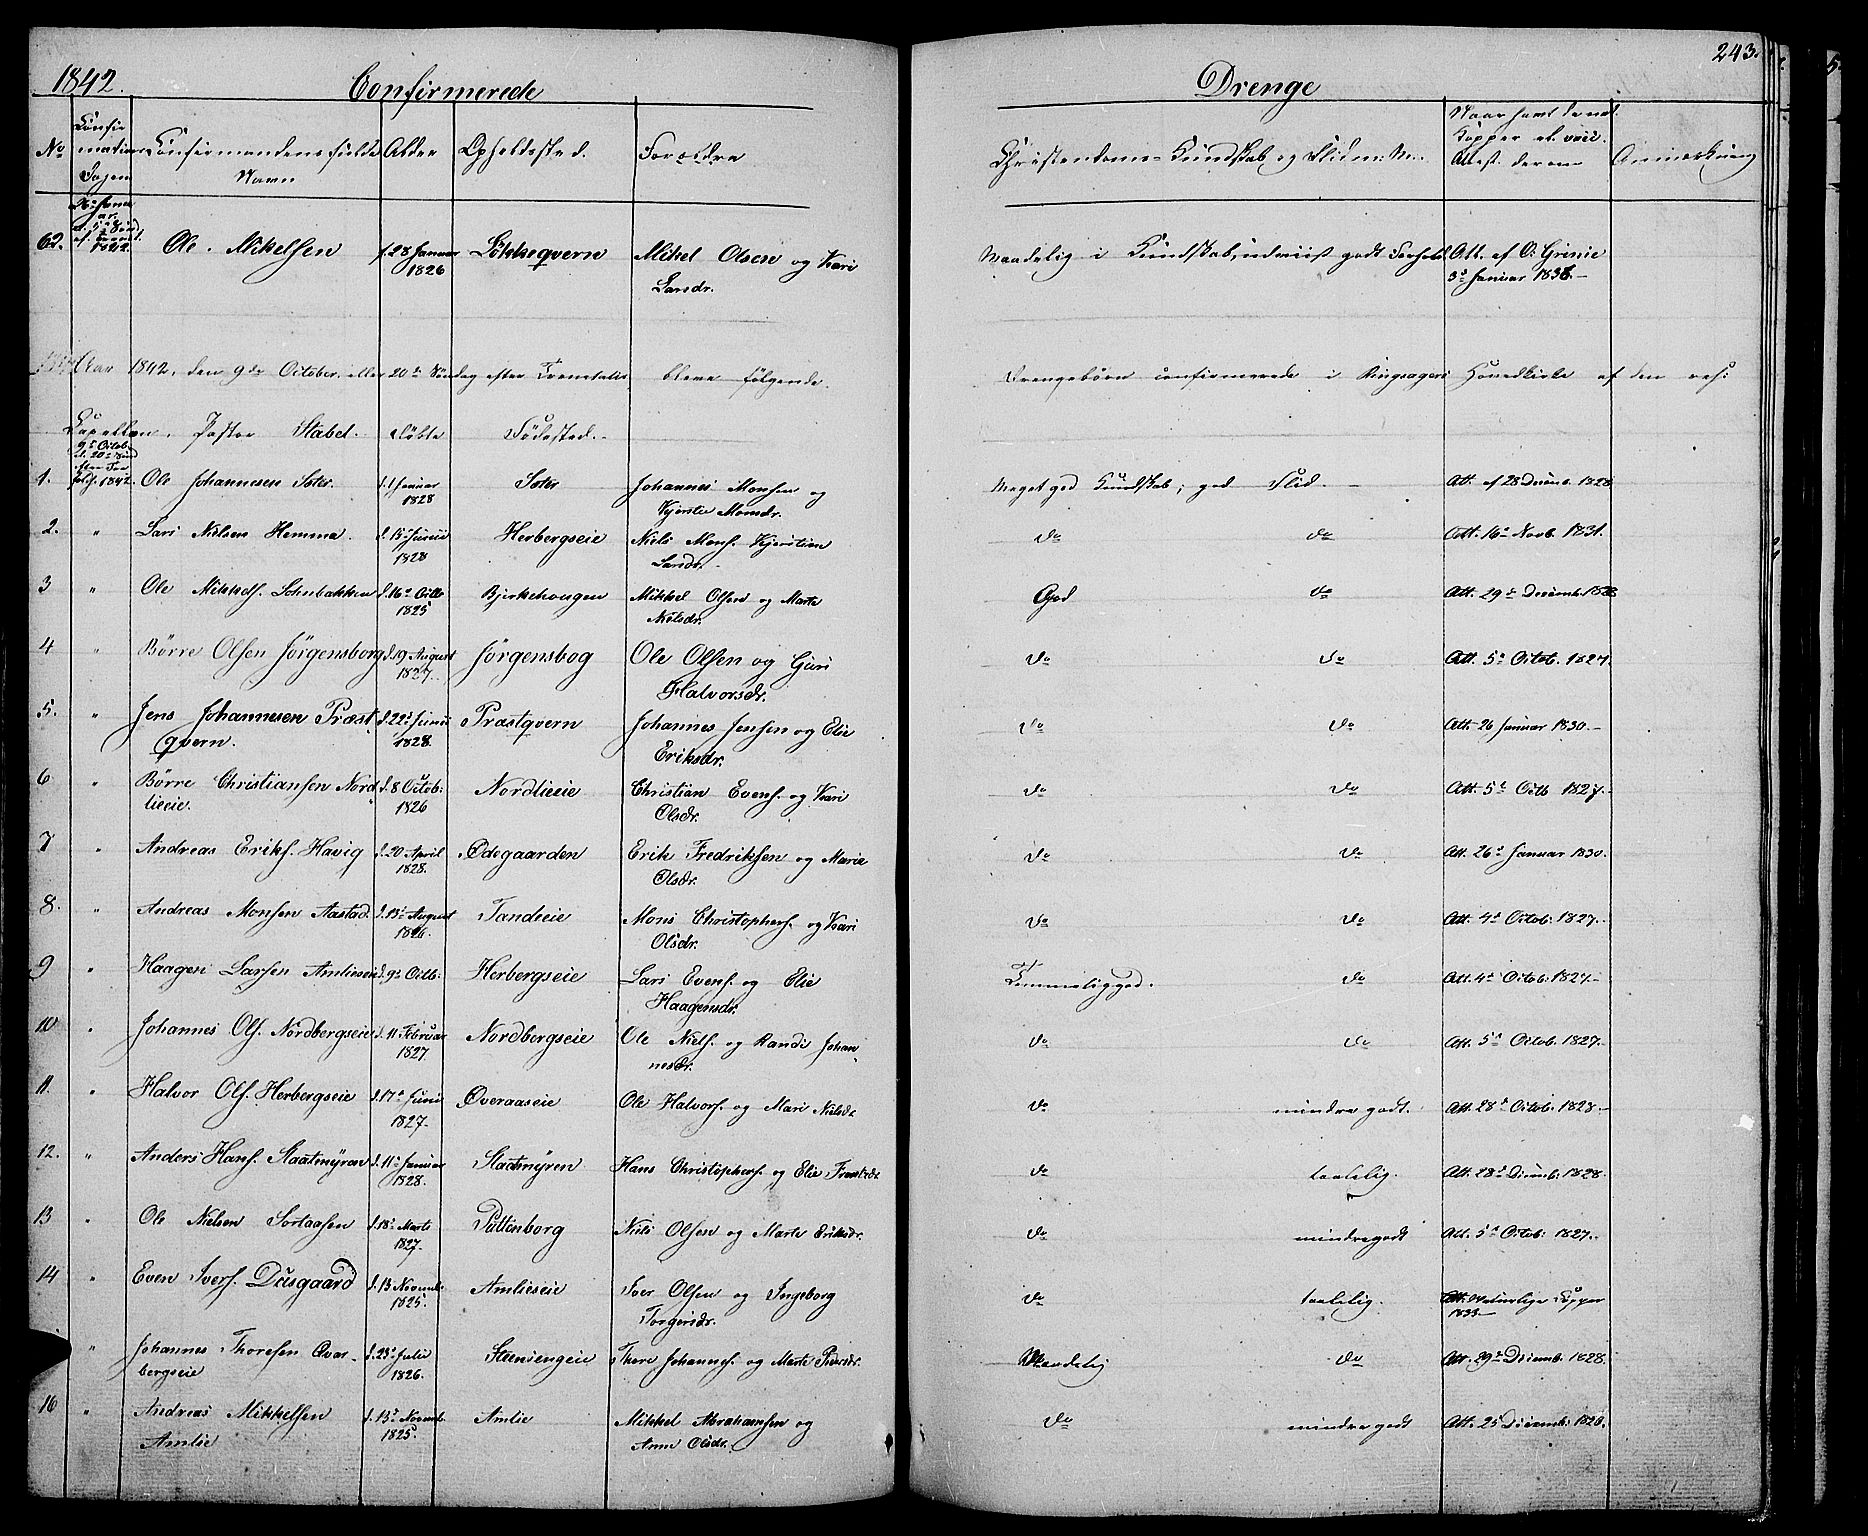 1842. Confirmerede Drenge 243.
No Confirmations Dagen Confirmandens fulde Navn Alder Opholdssted. Forældre Christendoms-Kundskab og Flid m: m. Naar samt de nat. Kopper el. vacc. Attest. derom Anmærkning
62. 1842. Ole Mikelsen f. 28 Januar 1826 Lökkeqvern Mikel Olsen og Kari Larsdr. Maadelig i Kundskab, udviist godt Forhold Att. af O: Grinie 3d Januar 1838.-
Aar 1842, den 9de October eller 20de Söndag efter Trinitatis bleve følgende Drengebörn confirmerede i Ringsagers Hovedkirke af den res:
Capellan, Pastor Stabel. Födested.-
1. 9de Octob. el. 20de Sönd. 1842. Ole Johannesen Sæter. f. 1 Januar 1828 Sæter Johannes Monsen og Kjerstie Monsdr. Meget god Kundskab; god Flid. - Att. af 28 Decemb. 1828
2. " Lars Nielsen Hemma. d. 15de Junii 1828 Herbergseie Niels Mons. Kjerstien Larsdr. do do Att. 16de Novb. 1831.
3 " Ole Mikkels. Lohnbakken d. 16de Octb 1825 Bjerkehougen Mikkel Olsen og Marte Nielsdr. God do Att. 29de Decemb. 1828
4 " Börre Olsen Jörgensborg d. 19 August 1827. Jörgensbog Ole Olsen og Guri Halvorsdr. do do Att. 5d Octob. 1827.
5. " Jens Johannesen Præstqvern. d. 22d Junii 1828. Præstqvern Johannes Jensen og Elie Eriksdr. do do Att. 26 Januar 1830.-
6 " Börre Christiansen Nordlieeie. d. 8 Octob: 1826 Nordlieeie Christian Evens. og Kari Olsdr. do do Att. 5d Octb 1827.-
7 " Andreas Eriks. Havig d. 20 April 1828. Ödegaarden Erik Fredriksen og Marie Olsdr. do do Att. 26d Januar 1830.
8. " Andreas Monsen Aastad. d. 13d August 1826. Tandeeie Mons Christophers. og Kari Olsdr. do do Att. 4d Octob: 1827.-
9 " Haagen Larsen Amlieeie d. 9d Octb: Herbergseie Lars Evens. og Elie Haagensdr. Temmelig god. do Att. 4d Octob: 1827.-
10 " Johannes Ols. Nordbergseie d. 11 Februar 1827. Nordbergseie Ole Niels. og Randi Johannesdr. do do Att. 5d Octob. 1827.-
11. " Halvor Ols. Herbergseie d. 17d Junii 1827- Overaaseie Ole Halvors. og Mari Nielsdr do mindre godt. Att. 28d Octob. 1828.-
12. " Anders Hans. Slaatmyren d. 11d Januar 1828. Slaatmyren Hans Christophers. og Elie do taalelig. Att. 28d Decemb. 1828.
13 " Ole Nielsen Sortaasen d. 18d Marts 1827- Puttenborg Niels Olsen og Marte Eriksdr. do mindre godt Att. 5d Octob: 1827.-
14 " Even Ivers. Dusgaard d. 13 Novemb. 1825. Amlieseie Iver Olsen og Ingeborg Torgersdr. do taalelig. Att. Naturlige Kopper 1833-
" Johannes Thoresen Qvarbergseie d. 23d Julii 1826. Steensengeie Thore Johanns. og Marte Pedersdr. Maadelig do Att. 29de Decemb. 1828.
16 " Andreas Mikkelsen Amlie d. 13d Novemb. 1825. Amlie Mikkel Abrahamsen og Anne Olsdr. do mindre godt Att. 25 Decemb: 1828.